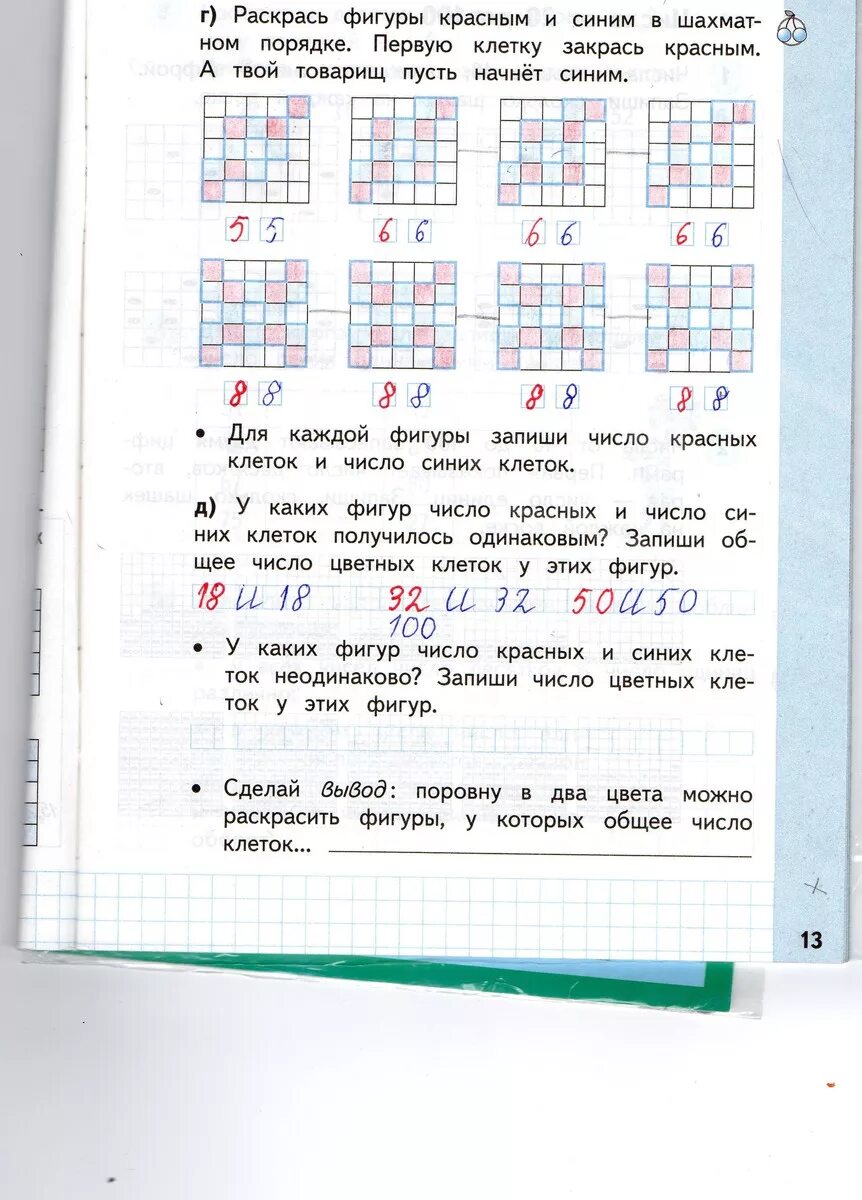 г) Раскрась фигуры красным и синим в шахмат-
ном порядке. Первую клетку закрась красным.
А твой товарищ пусть начнёт синим.
5 5 6 6 6 6 6 6
8 8 8 8 8 8 8 8
• Для каждой фигуры запиши число красных
клеток и число синих клеток.
д) У каких фигур число красных и число си-
них клеток получилось одинаковым? Запиши об-
щее число цветных клеток у этих фигур.
18 и 18 32 и 32 50 и 50
100
• У каких фигур число красных и синих кле-
ток неодинаково? Запиши число цветных кле-
ток у этих фигур.
• Сделай вывод: поровну в два цвета можно
раскрасить фигуры, у которых общее число
клеток...
13